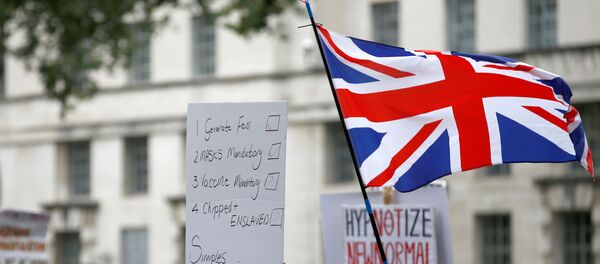 1 Generate Fear
2 MASKS Mandatory
3 Vaccine Mandatory
4 Chipped +
ENSLAVED
Simples
HYPNOTIZE
NEWNORMAL